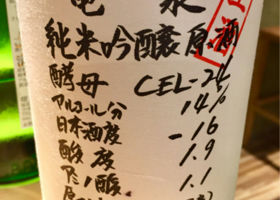 亀泉
純米吟醸原酒
酵母 CEL-24
アルコール分 14%
日本酒度 -16
酸度 1.9
アミノ酸 1.1